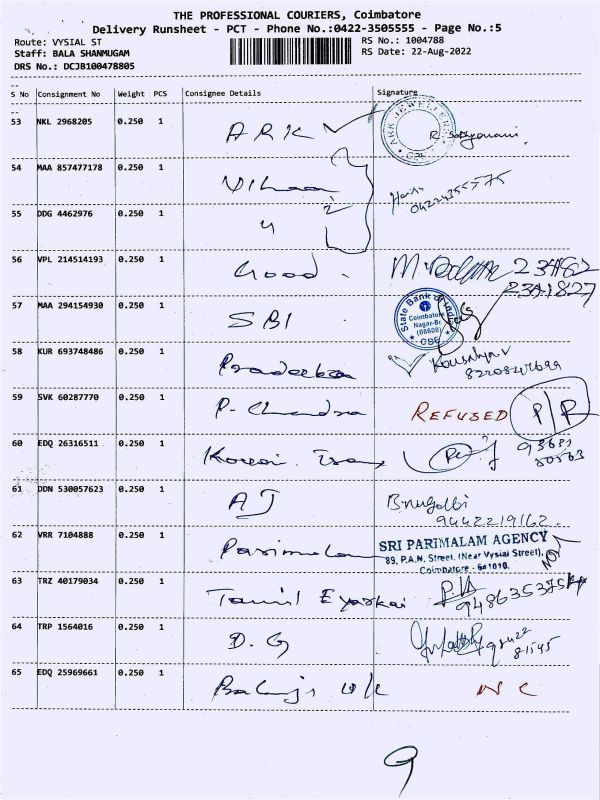 THE PROFESSIONAL COURIERS, Coimbatore
Delivery Runsheet - PCT - Phone No.:0422-3505555 - Page No.:5
Route: VYSIAL ST
RS No.: 1004788
Staff: BALA SHANMUGAM
RS Date: 22-Aug-2022
DRS No.: DCJB100478805
S No Consignment No Weight PCS Consignee Details Signature
53 NKL 2968205 0.250 1 ARK
ARK JEWELLERS
CBE
54 MAA 857477178 0.250 1
55 DDG 4462976 0.250 1 4
56 VPL 214514193 0.250 1 Good.
57 MAA 294154930 0.250 1 SBI
State Bank of India
Coimbatore
Nagar-Br.
(08608)
CBE
58 KUR 693748486 0.250 1 Pradeeksa
59 SVK 60287770 0.250 1 P. Chandra REFUSED P/R
60 EDQ 26316511 0.250 1
61 DDN 530057623 0.250 1 AJ
9442219162
62 VRR 7104888 0.250 1 Parimalam
SRI PARIMALAM AGENCY
89, P.A.N. Street, (Near Vysial Street),
Coimbatore - 641010.
63 TRZ 40179034 0.250 1 Tamil Eyarkai
64 TRP 1564016 0.250 1 D.G
65 EDQ 25969661 0.250 1 Balaji NC
9